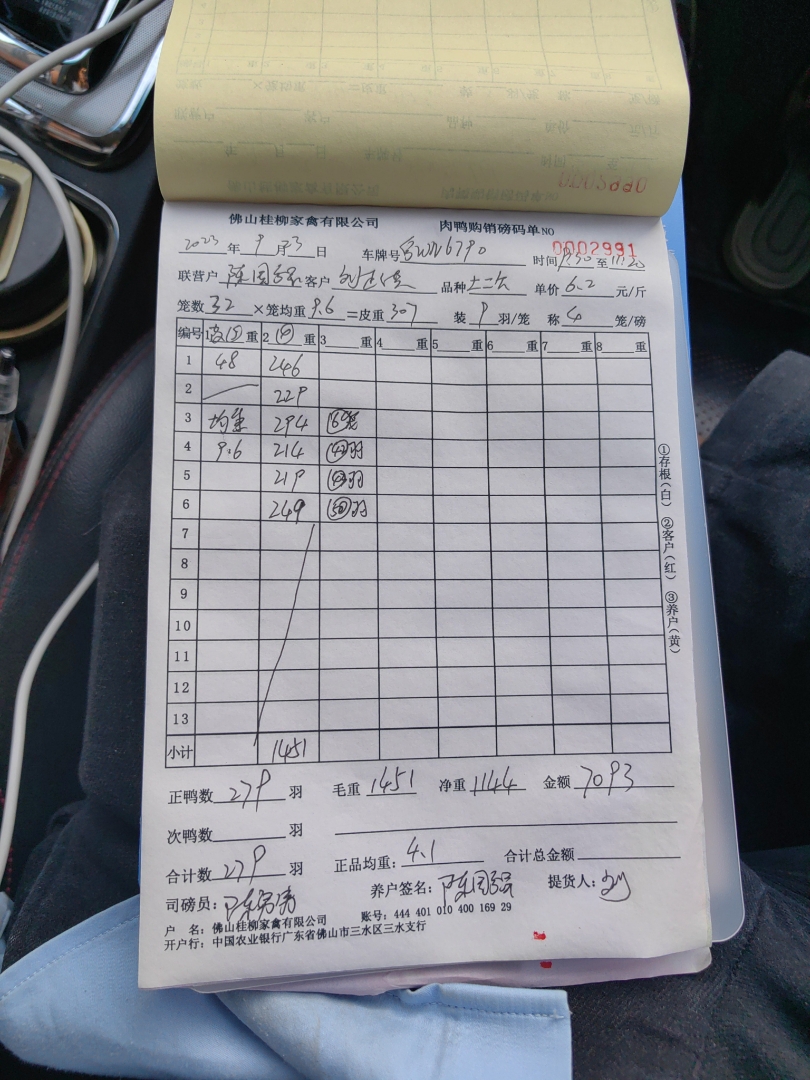 佛山桂柳家禽有限公司 肉鸭购销磅码单 NO 0002991
2023 年 9 月 23 日 车牌号 6790 时间 至 11:20
联营户 陈国强 客户 刘 品种 土二次 单价 6.2 元/斤
笼数 32 ×笼均重 9.6 =皮重 307 装 9 羽/笼 称 4 笼/磅
编号 1 重 2 重 3 重 4 重 5 重 6 重 7 重 8 重
1 48 246
2 229
3 均重 294 ⑥笼
4 9.6 214 羽
5 219 羽
6 249 羽
7
8
9
10
11
12
13
小计 1451
正鸭数 279 羽 毛重 1451 净重 1144 金额 7093
次鸭数 羽
合计数 279 羽 正品均重: 4.1 合计总金额
司磅员: 陈 养户签名: 陈国强 提货人: 刘
户 名: 佛山桂柳家禽有限公司 账号: 444 401 010 400 169 29
开户行: 中国农业银行广东省佛山市三水区三水支行
①存根(白) ②客户(红) ③养户(黄)